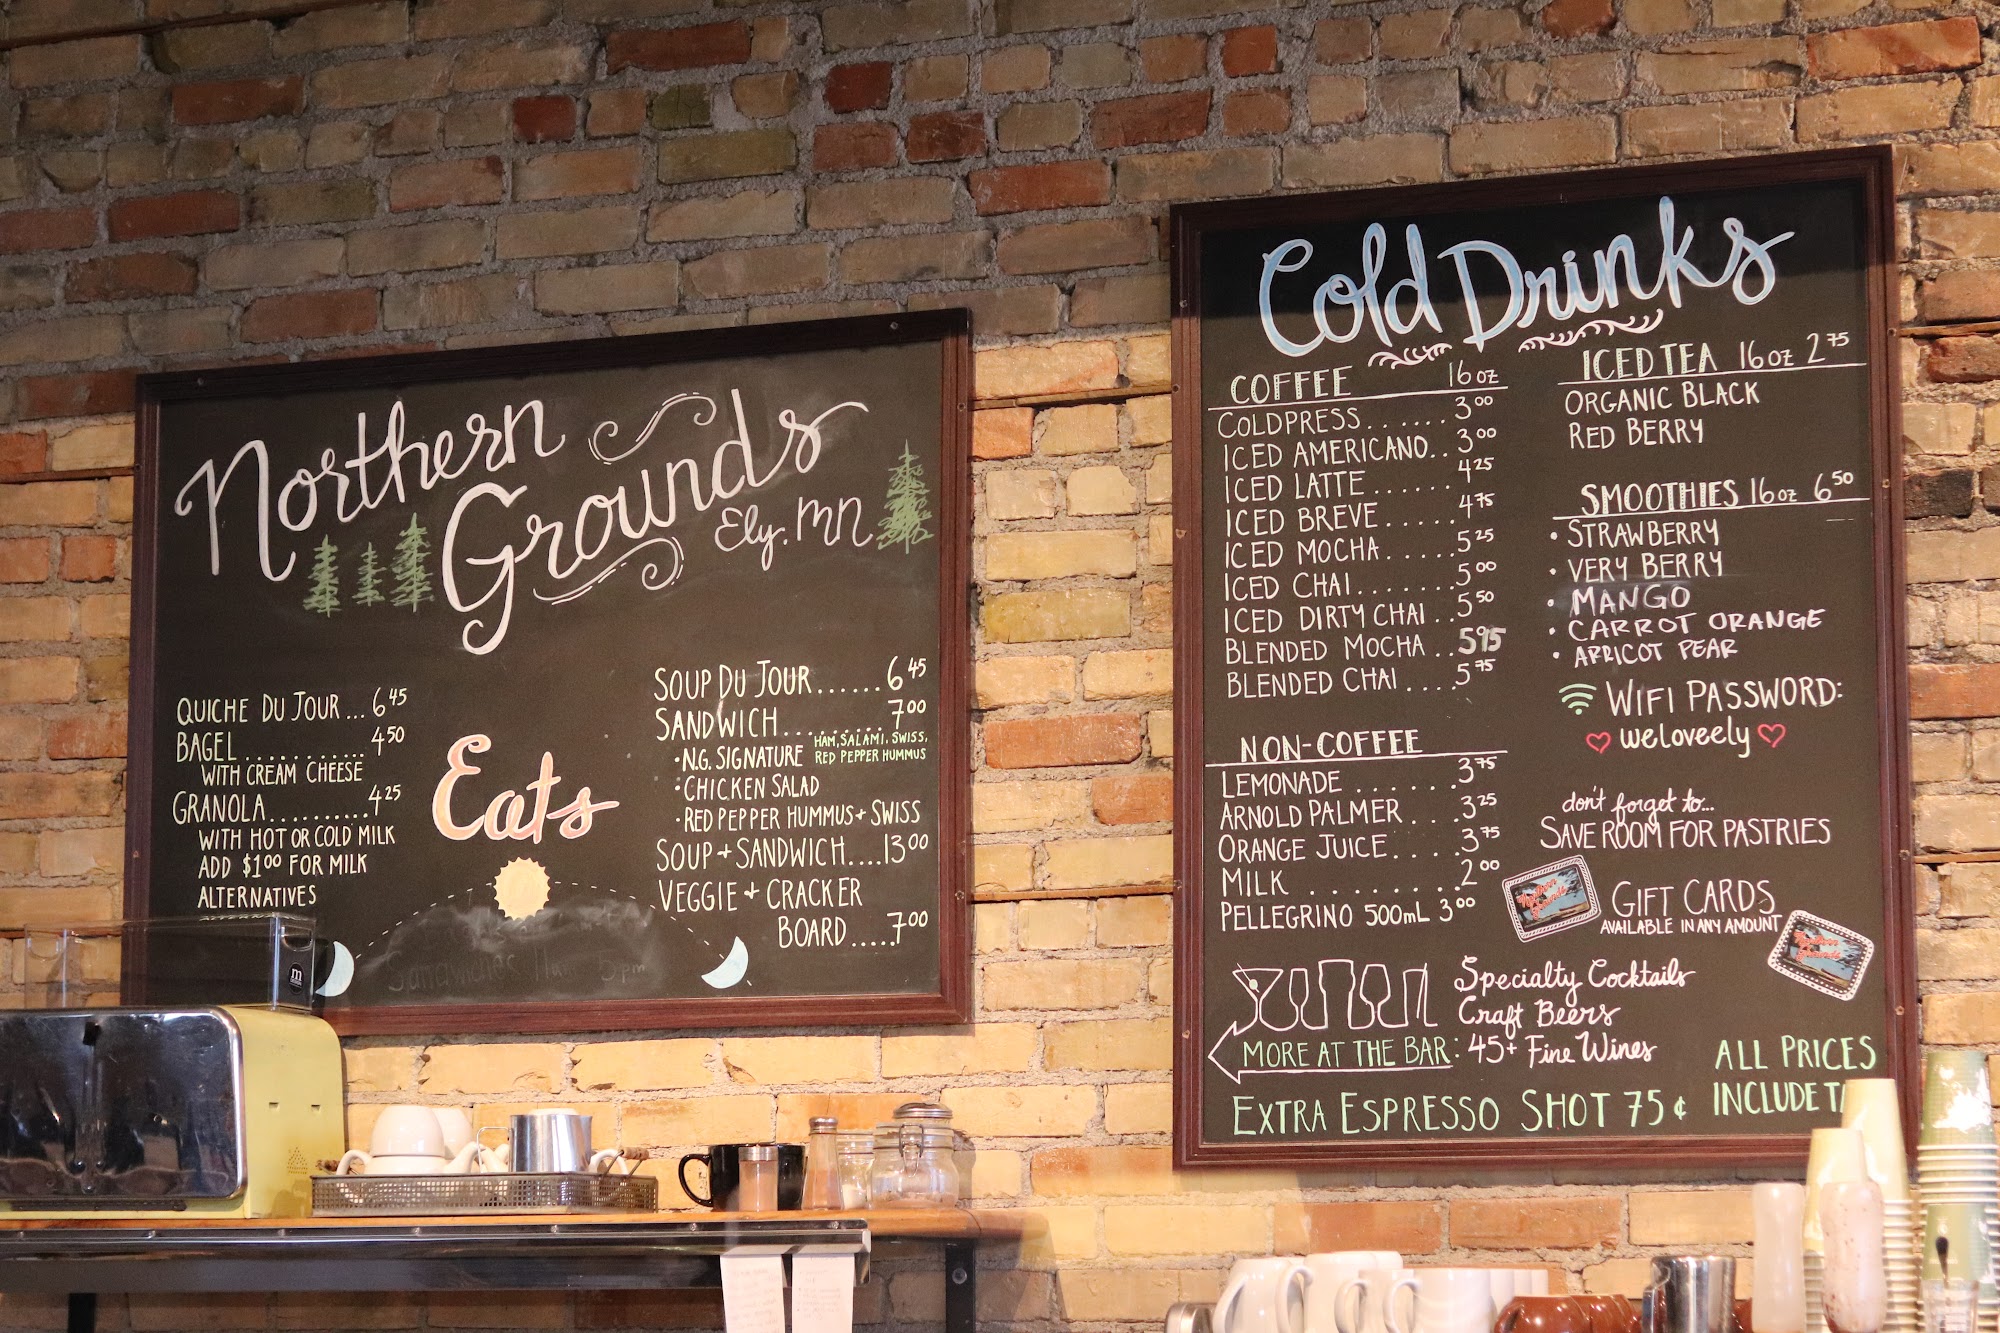 Northern
Grounds
Ely, MN
QUICHE DU JOUR... 6 45
BAGEL............ 4 50
WITH CREAM CHEESE
GRANOLA.......... 4 25
WITH HOT OR COLD MILK
ADD $1 00 FOR MILK
ALTERNATIVES
Eats
Sandwiches 11am 5pm
SOUP DU JOUR...... 6 45
SANDWICH.......... 7 00
• N.G. SIGNATURE HAM, SALAMI, SWISS,
RED PEPPER HUMMUS
• CHICKEN SALAD
• RED PEPPER HUMMUS + SWISS
SOUP + SANDWICH.... 13 00
VEGGIE + CRACKER
BOARD..... 7 00
m
Cold Drinks
COFFEE 16 OZ
COLDPRESS....... 3 00
ICED AMERICANO.. 3 00
ICED LATTE...... 4 25
ICED BREVE..... 4 75
ICED MOCHA..... 5 25
ICED CHAI....... 5 00
ICED DIRTY CHAI.. 5 50
BLENDED MOCHA.. 5 95
BLENDED CHAI.... 5 75
NON-COFFEE
LEMONADE ...... 3 75
ARNOLD PALMER ... 3 25
ORANGE JUICE.... 3 75
MILK ......... 2 00
PELLEGRINO 500mL 3 00
ICED TEA 16 OZ 2 75
ORGANIC BLACK
RED BERRY
SMOOTHIES 16 OZ 6 50
• STRAWBERRY
• VERY BERRY
• MANGO
• CARROT ORANGE
• APRICOT PEAR
WIFI PASSWORD:
weloveely
don't forget to...
SAVE ROOM FOR PASTRIES
Northern
Grounds
GIFT CARDS
AVAILABLE IN ANY AMOUNT
Northern
Grounds
Specialty Cocktails
Craft Beers
MORE AT THE BAR: 45+ Fine Wines
ALL PRICES
INCLUDE
EXTRA ESPRESSO SHOT 75¢